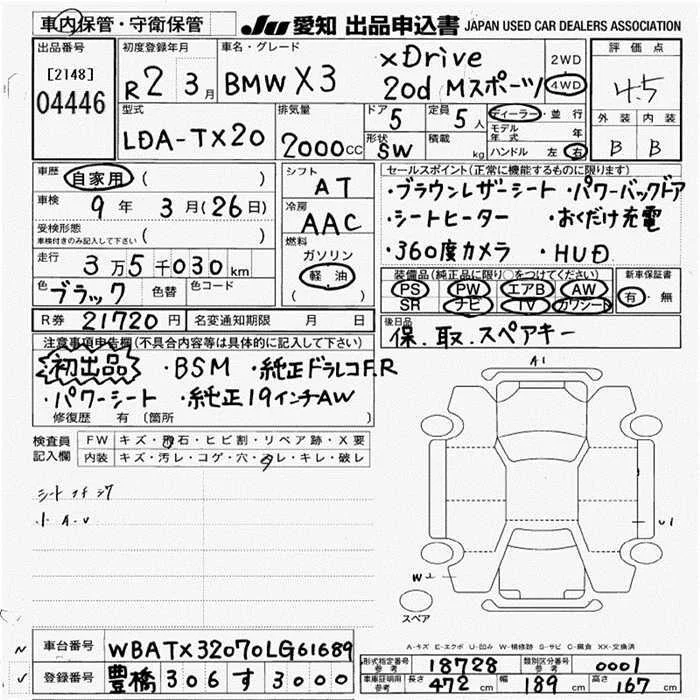 車内保管・守衛保管
JU 愛知 出品申込書 JAPAN USED CAR DEALERS ASSOCIATION
出品番号
[2148]
04446
初度登録年月
R2 3月
車名・グレード
BMW X3
xDrive
20d Mスポーツ
2WD
4WD
評価点
4.5
外装 内装
B B
型式
LDA-TX20
排気量
2000cc
ドア
5
定員
5人
形状
SW
積載
kg
ディーラー・並行
モデル年式 年
ハンドル 左 右
車歴
自家用 ( )
車検
9年 3月(26日)
受検形態
車検付きのみ記入して下さい ( )
走行
3万5千030km
色
ブラック
色替
色コード
シフト
AT
冷房
AAC
燃料
ガソリン
軽油
( )
セールスポイント(正常に機能するものに限ります)
・ブラウンレザーシート ・パワーバックドア
・シートヒーター ・おくだけ充電
・360度カメラ ・HUD
装備品(純正品に限り○をつけてください)
PS PW エアB AW
SR ナビ TV カワシート
新車保証書
有・無
R券 21720円 名変通知期限 月 日
後日品
保.取.スペアキー
注意事項申告欄(不具合内容等は具体的に記入して下さい)
初出品 ・BSM ・純正ドラレコF.R
・パワーシート ・純正19インチAW
修復歴 有 (箇所 )
検査員記入欄
FW キズ・飛石・ヒビ割・リペア跡・X要
内装 キズ・汚レ・コゲ・穴・スレ・キレ・破レ
小 A.U
A1
U1
W
スペア
A-キズ E-エクボ U-凹み W-補修跡 S-サビ C-腐食 XX-交換済
車台番号 WBATX32070LG61689
登録番号 豊橋 306 す 3000
型式指定番号 参考 18728
類別区分番号 参考 0001
車庫証明用 参考 長さ 472cm 幅 189cm 高さ 167cm